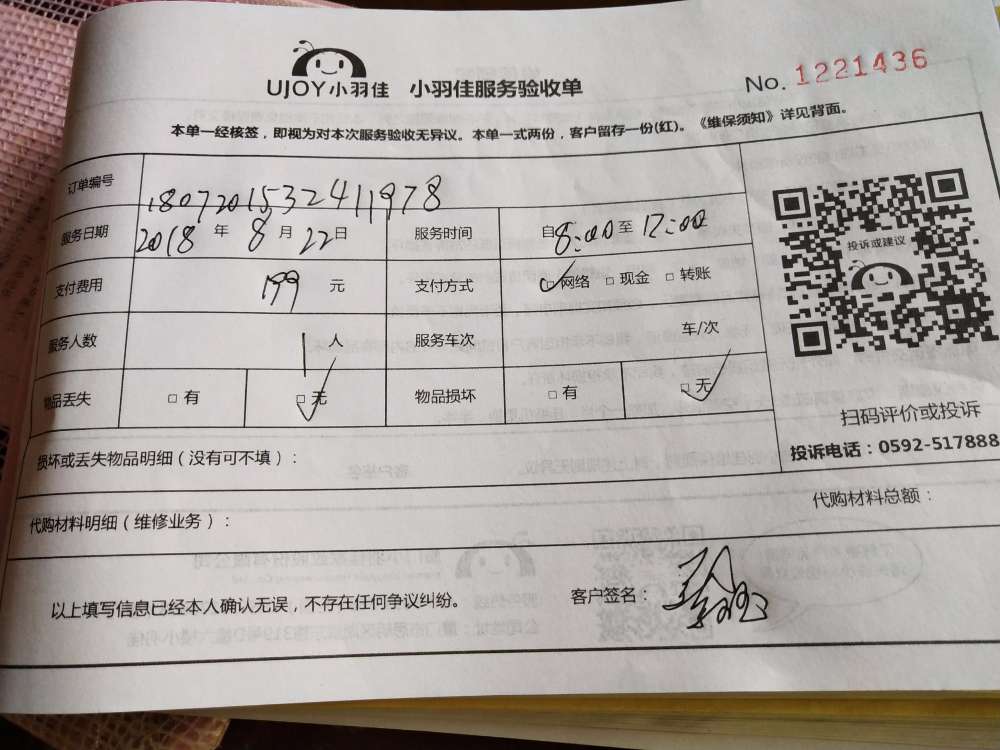 UJOY小羽佳 小羽佳服务验收单 No. 1221436
本单一经核签，即视为对本次服务验收无异议。本单一式两份，客户留存一份(红)。《维保须知》详见背面。
订单编号 180720153241 1978
服务日期 2018 年 8 月 22 日 服务时间 自 8:00 至 12:00
支付费用 199 元 支付方式 □ 网络 □ 现金 □ 转账
服务人数 1 人 服务车次 车/次
物品丢失 □ 有 □ 无 物品损坏 □ 有 □ 无
投诉或建议
扫码评价或投诉
投诉电话：0592-517888
损坏或丢失物品明细（没有可不填）：
代购材料明细（维修业务）： 代购材料总额：
以上填写信息已经本人确认无误，不存在任何争议纠纷。 客户签名：